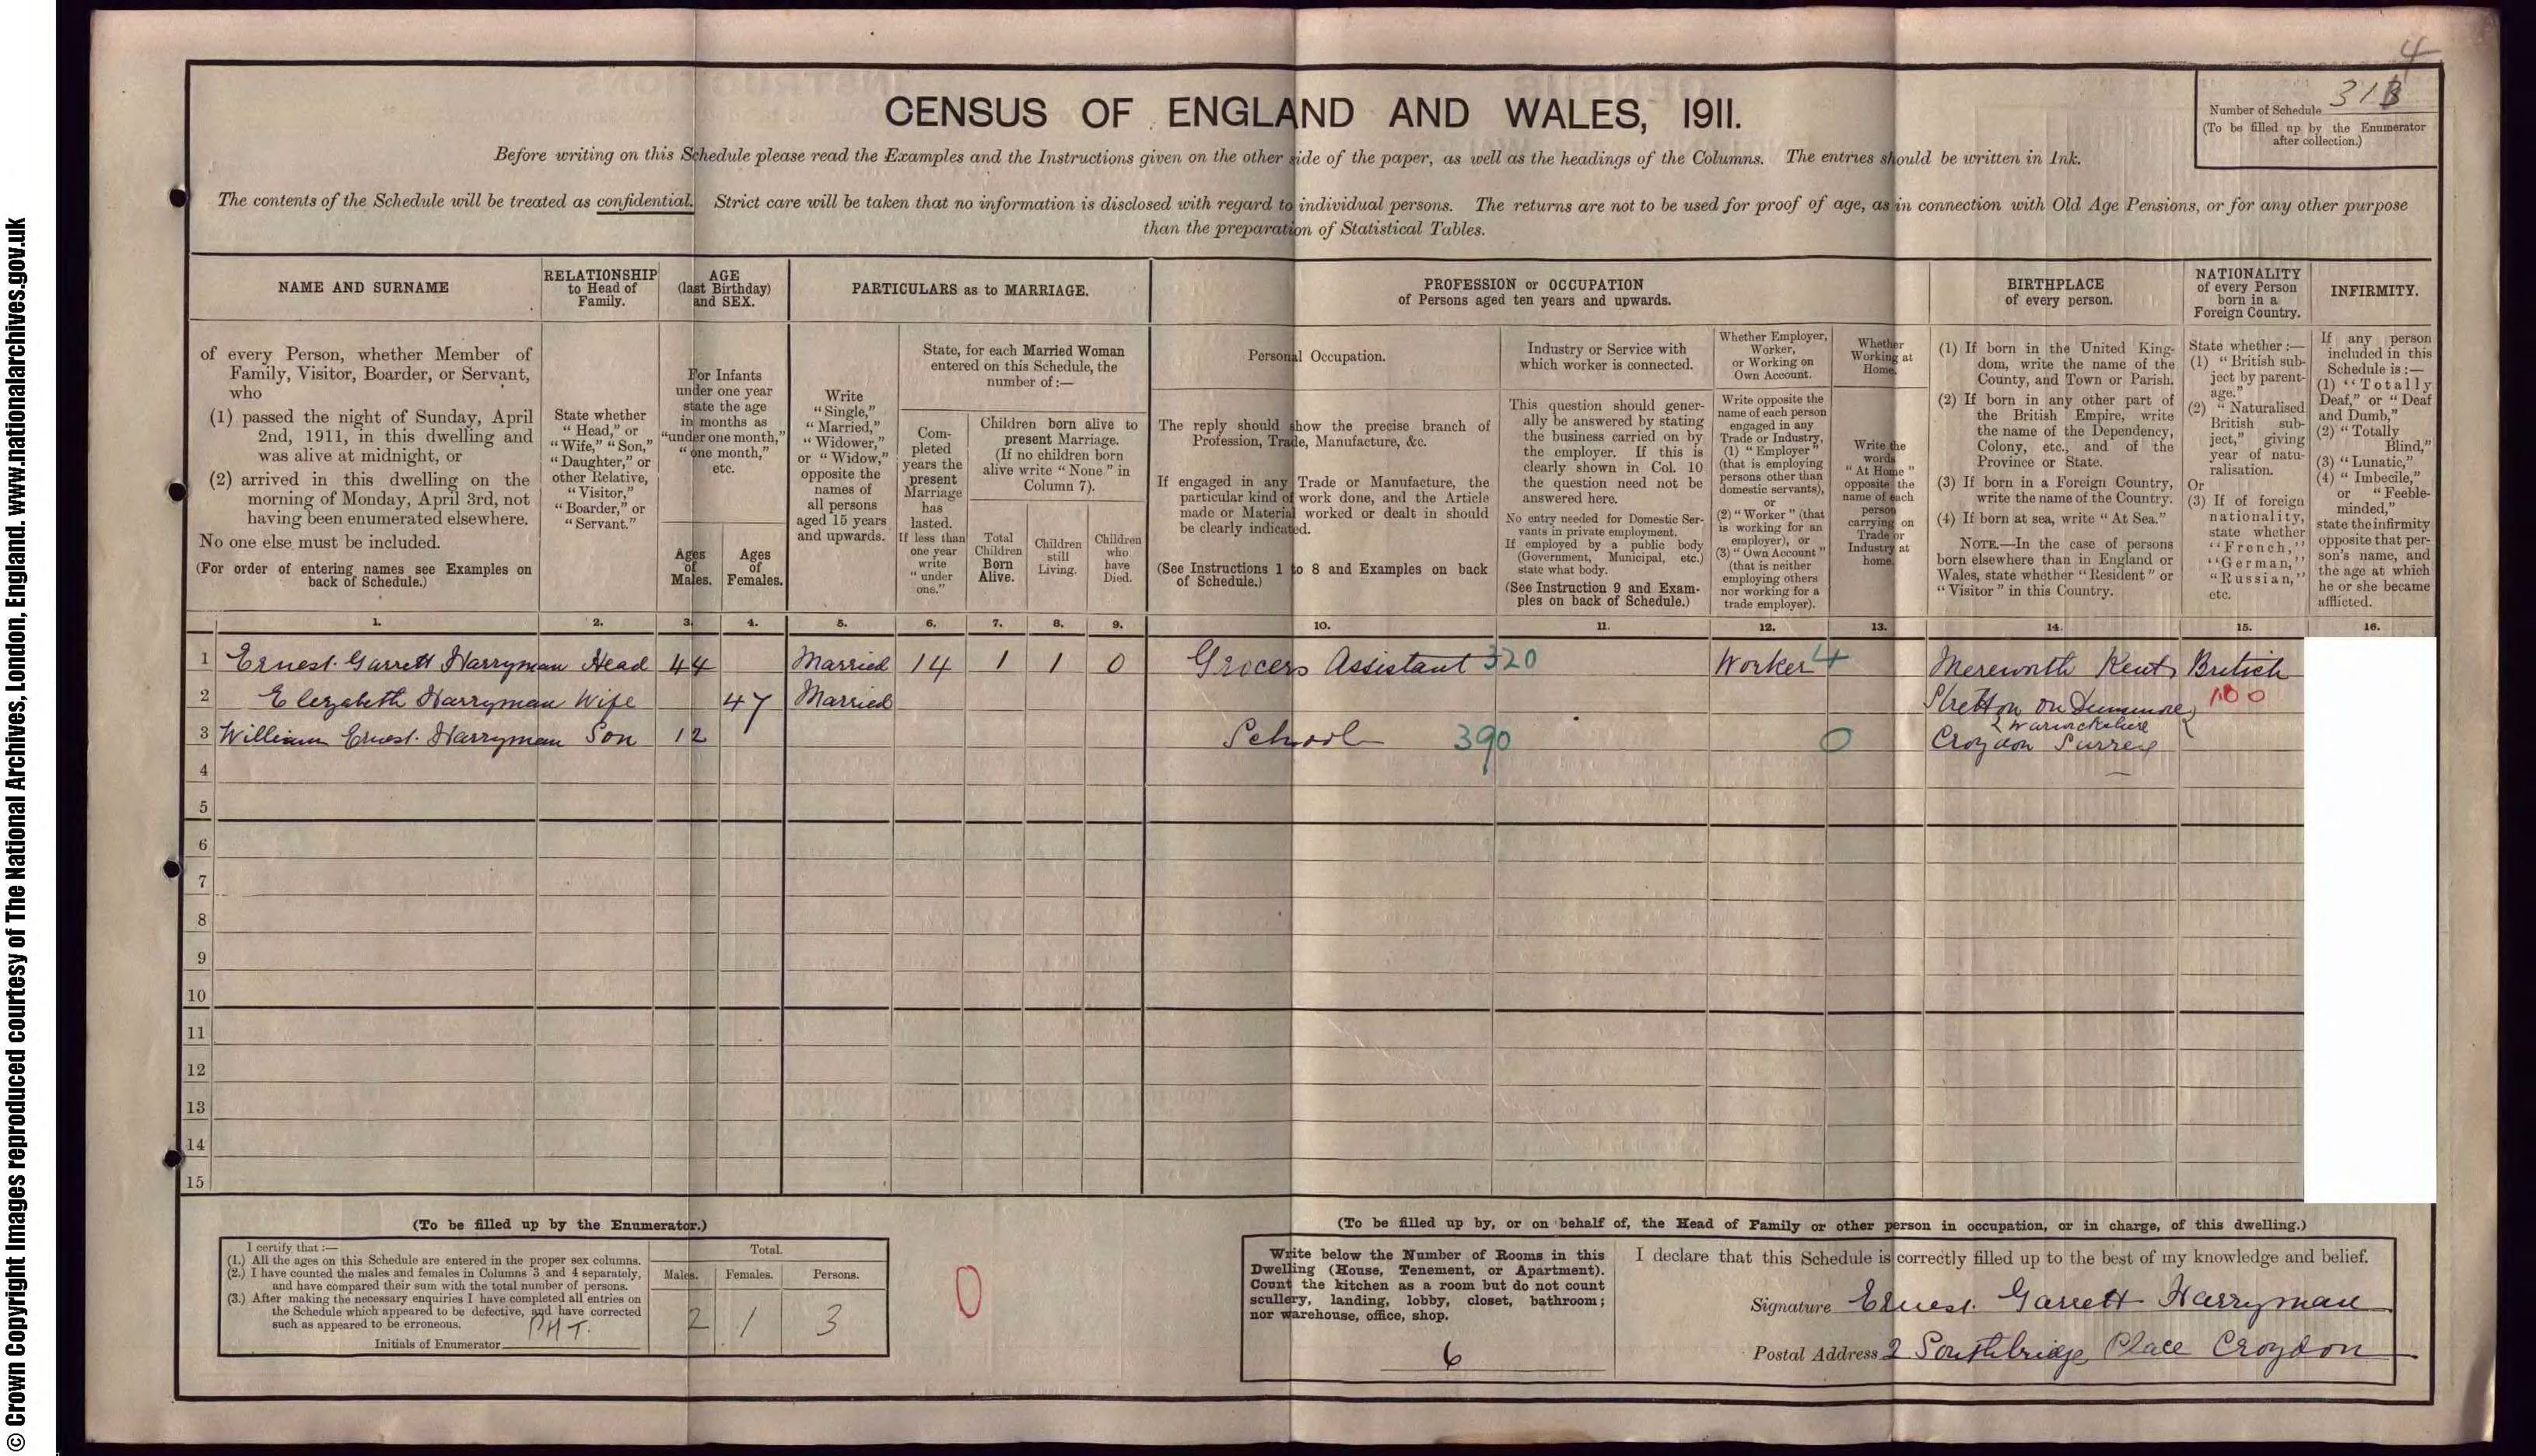 © Crown Copyright Images reproduced courtesy of The National Archives, London, England. www.nationalarchives.gov.uk
4
CENSUS OF ENGLAND AND WALES, 1911.
Number of Schedule 313
(To be filled up by the Enumerator
after collection.)
Before writing on this Schedule please read the Examples and the Instructions given on the other side of the paper, as well as the headings of the Columns. The entries should be written in Ink.
The contents of the Schedule will be treated as confidential. Strict care will be taken that no information is disclosed with regard to individual persons. The returns are not to be used for proof of age, as in connection with Old Age Pensions, or for any other purpose
than the preparation of Statistical Tables.
NAME AND SURNAME
of every Person, whether Member of
Family, Visitor, Boarder, or Servant,
who
(1) passed the night of Sunday, April
2nd, 1911, in this dwelling and
was alive at midnight, or
(2) arrived in this dwelling on the
morning of Monday, April 3rd, not
having been enumerated elsewhere.
No one else must be included.
(For order of entering names see Examples on
back of Schedule.)
RELATIONSHIP
to Head of
Family.
State whether
"Head," or
"Wife," "Son,"
"Daughter," or
other Relative,
"Visitor,"
"Boarder," or
"Servant."
AGE
(last Birthday)
and SEX.
For Infants
under one year
state the age
in months as
"under one month,"
"one month,"
etc.
Ages
of
Males.
Ages
of
Females.
PARTICULARS as to MARRIAGE.
Write
"Single,"
"Married,"
"Widower,"
or "Widow,"
opposite the
names of
all persons
aged 15 years
and upwards.
State, for each Married Woman
entered on this Schedule, the
number of :—
Com-
pleted
years the
present
Marriage
has
lasted.
If less than
one year
write
"under
one."
Children born alive to
present Marriage.
(If no children born
alive write "None" in
Column 7).
Total
Children
Born
Alive.
Children
still
Living.
Children
who
have
Died.
PROFESSION or OCCUPATION
of Persons aged ten years and upwards.
Personal Occupation.
The reply should show the precise branch of
Profession, Trade, Manufacture, &c.
If engaged in any Trade or Manufacture, the
particular kind of work done, and the Article
made or Material worked or dealt in should
be clearly indicated.
(See Instructions 1 to 8 and Examples on back
of Schedule.)
Industry or Service with
which worker is connected.
This question should gener-
ally be answered by stating
the business carried on by
the employer. If this is
clearly shown in Col. 10
the question need not be
answered here.
No entry needed for Domestic Ser-
vants in private employment.
If employed by a public body
(Government, Municipal, etc.)
state what body.
(See Instruction 9 and Exam-
ples on back of Schedule.)
Whether Employer,
Worker,
or Working on
Own Account.
Write opposite the
name of each person
engaged in any
Trade or Industry,
(1) "Employer"
(that is employing
persons other than
domestic servants),
or
(2) "Worker" (that
is working for an
employer), or
(3) "Own Account"
(that is neither
employing others
nor working for a
trade employer).
Whether
Working at
Home.
Write the
words
"At Home"
opposite the
name of each
person
carrying on
Trade or
Industry at
home.
BIRTHPLACE
of every person.
(1) If born in the United King-
dom, write the name of the
County, and Town or Parish.
(2) If born in any other part of
the British Empire, write
the name of the Dependency,
Colony, etc., and of the
Province or State.
(3) If born in a Foreign Country,
write the name of the Country.
(4) If born at sea, write "At Sea."
NOTE.—In the case of persons
born elsewhere than in England or
Wales, state whether "Resident" or
"Visitor" in this Country.
NATIONALITY
of every Person
born in a
Foreign Country.
State whether :—
(1) "British sub-
ject by parent-
age."
(2) "Naturalised
British sub-
ject," giving
year of natu-
ralisation.
Or
(3) If of foreign
nationality,
state whether
"French,"
"German,"
"Russian,"
etc.
INFIRMITY.
If any person
included in this
Schedule is :—
(1) "Totally
Deaf," or "Deaf
and Dumb,"
(2) "Totally
Blind,"
(3) "Lunatic,"
(4) "Imbecile,"
or "Feeble-
minded,"
state the infirmity
opposite that per-
son's name, and
the age at which
he or she became
afflicted.
1. 2. 3. 4. 5. 6. 7. 8. 9. 10. 11. 12. 13. 14. 15. 16.
1 Ernest Garrett Harryman Head 44 Married 14 1 1 0 Grocers Assistant 320 Worker 4 Mereworth Kent British
2 Elizabeth Harryman Wife 47 Married Stretton on Dunsmore 180
Warwickshire
3 William Ernest Harryman Son 12 School 390 0 Croydon Surrey
4
5
6
7
8
9
10
11
12
13
14
15
(To be filled up by the Enumerator.)
I certify that :—
(1.) All the ages on this Schedule are entered in the proper sex columns.
(2.) I have counted the males and females in Columns 3 and 4 separately,
and have compared their sum with the total number of persons.
(3.) After making the necessary enquiries I have completed all entries on
the Schedule which appeared to be defective, and have corrected
such as appeared to be erroneous.
Initials of Enumerator PHT.
Total.
Males. Females. Persons.
2 1 3
0
(To be filled up by, or on behalf of, the Head of Family or other person in occupation, or in charge, of this dwelling.)
Write below the Number of Rooms in this
Dwelling (House, Tenement, or Apartment).
Count the kitchen as a room but do not count
scullery, landing, lobby, closet, bathroom;
nor warehouse, office, shop.
6
I declare that this Schedule is correctly filled up to the best of my knowledge and belief.
Signature Ernest Garrett Harryman
Postal Address 2 Southbridge Place Croydon